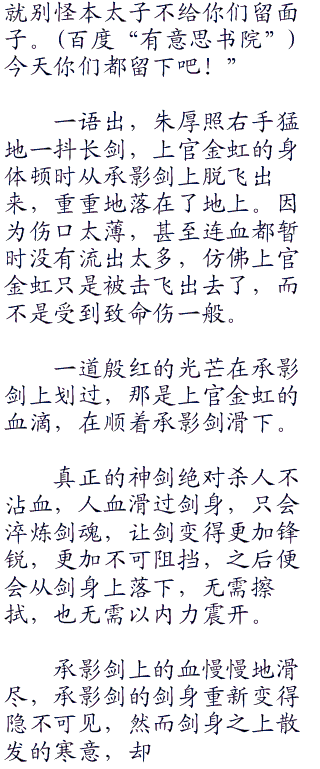 就别怪本太子不给你们留面
子。(百度“有意思书院”)
今天你们都留下吧！”
一语出，朱厚照右手猛
地一抖长剑，上官金虹的身
体顿时从承影剑上脱飞出
来，重重地落在了地上。因
为伤口太薄，甚至连血都暂
时没有流出太多，仿佛上官
金虹只是被击飞出去了，而
不是受到致命伤一般。
一道殷红的光芒在承影
剑上划过，那是上官金虹的
血滴，在顺着承影剑滑下。
真正的神剑绝对杀人不
沾血，人血滑过剑身，只会
淬炼剑魂，让剑变得更加锋
锐，更加不可阻挡，之后便
会从剑身上落下，无需擦
拭，也无需以内力震开。
承影剑上的血慢慢地滑
尽，承影剑的剑身重新变得
隐不可见，然而剑身之上散
发的寒意，却